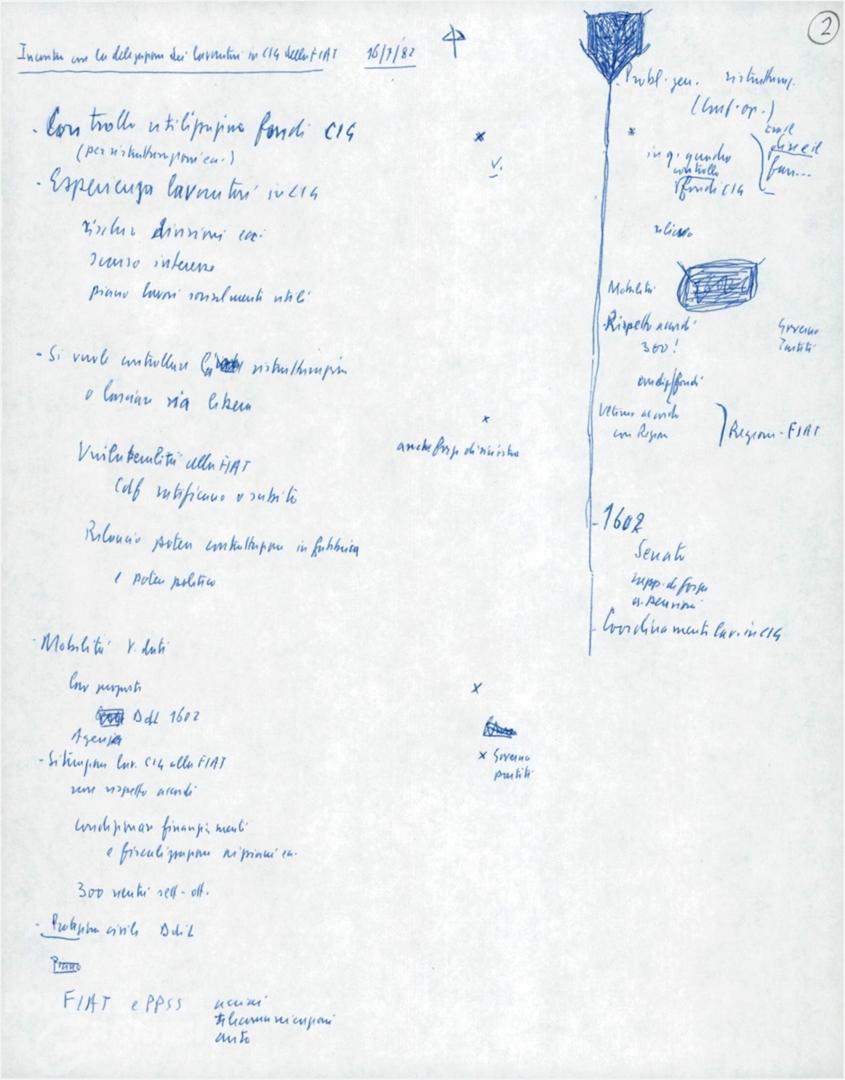 2
Incontro con la delegazione dei lavoratori in CIG della FIAT 16/7/82
- Controllo utilizzazione fondi CIG
(per ristrutturazioni ecc.)
- Esperienza lavoratori in CIG
rischio divisioni ecc.
scarso interesse
piano lavori socialmente utili
- Si vuole controllare ristrutturazione
o lasciare via libera
Unilateralità della FIAT
CdF ratificano o subito
anche forze di sinistra
Rilancio potere contrattazione in fabbrica
e potere politico
- Mobilità v. dati
loro proposte
Ddl 1602
Agenzia
- Situazione lav. CIG alla FIAT
rispetto accordi
Governo
partiti
condizionare finanziamenti
e fiscalizzazione ecc.
300 rientri sett-ott.
- Protezione civile DdiL
Piano
FIAT e PPSS acciai
telecomunicazioni
auto
Probl. gen. ristrutturaz.
in q. quadro
controllo
fondi CIG
rilancio
Mobilità
- Rispetto accordi
300!
Governo
Partiti
fondi
Ultimo accordo
con Regione
Regione - FIAT
- 1602
Senato
rapp. di forza
- Coordinamenti lav. in CIG